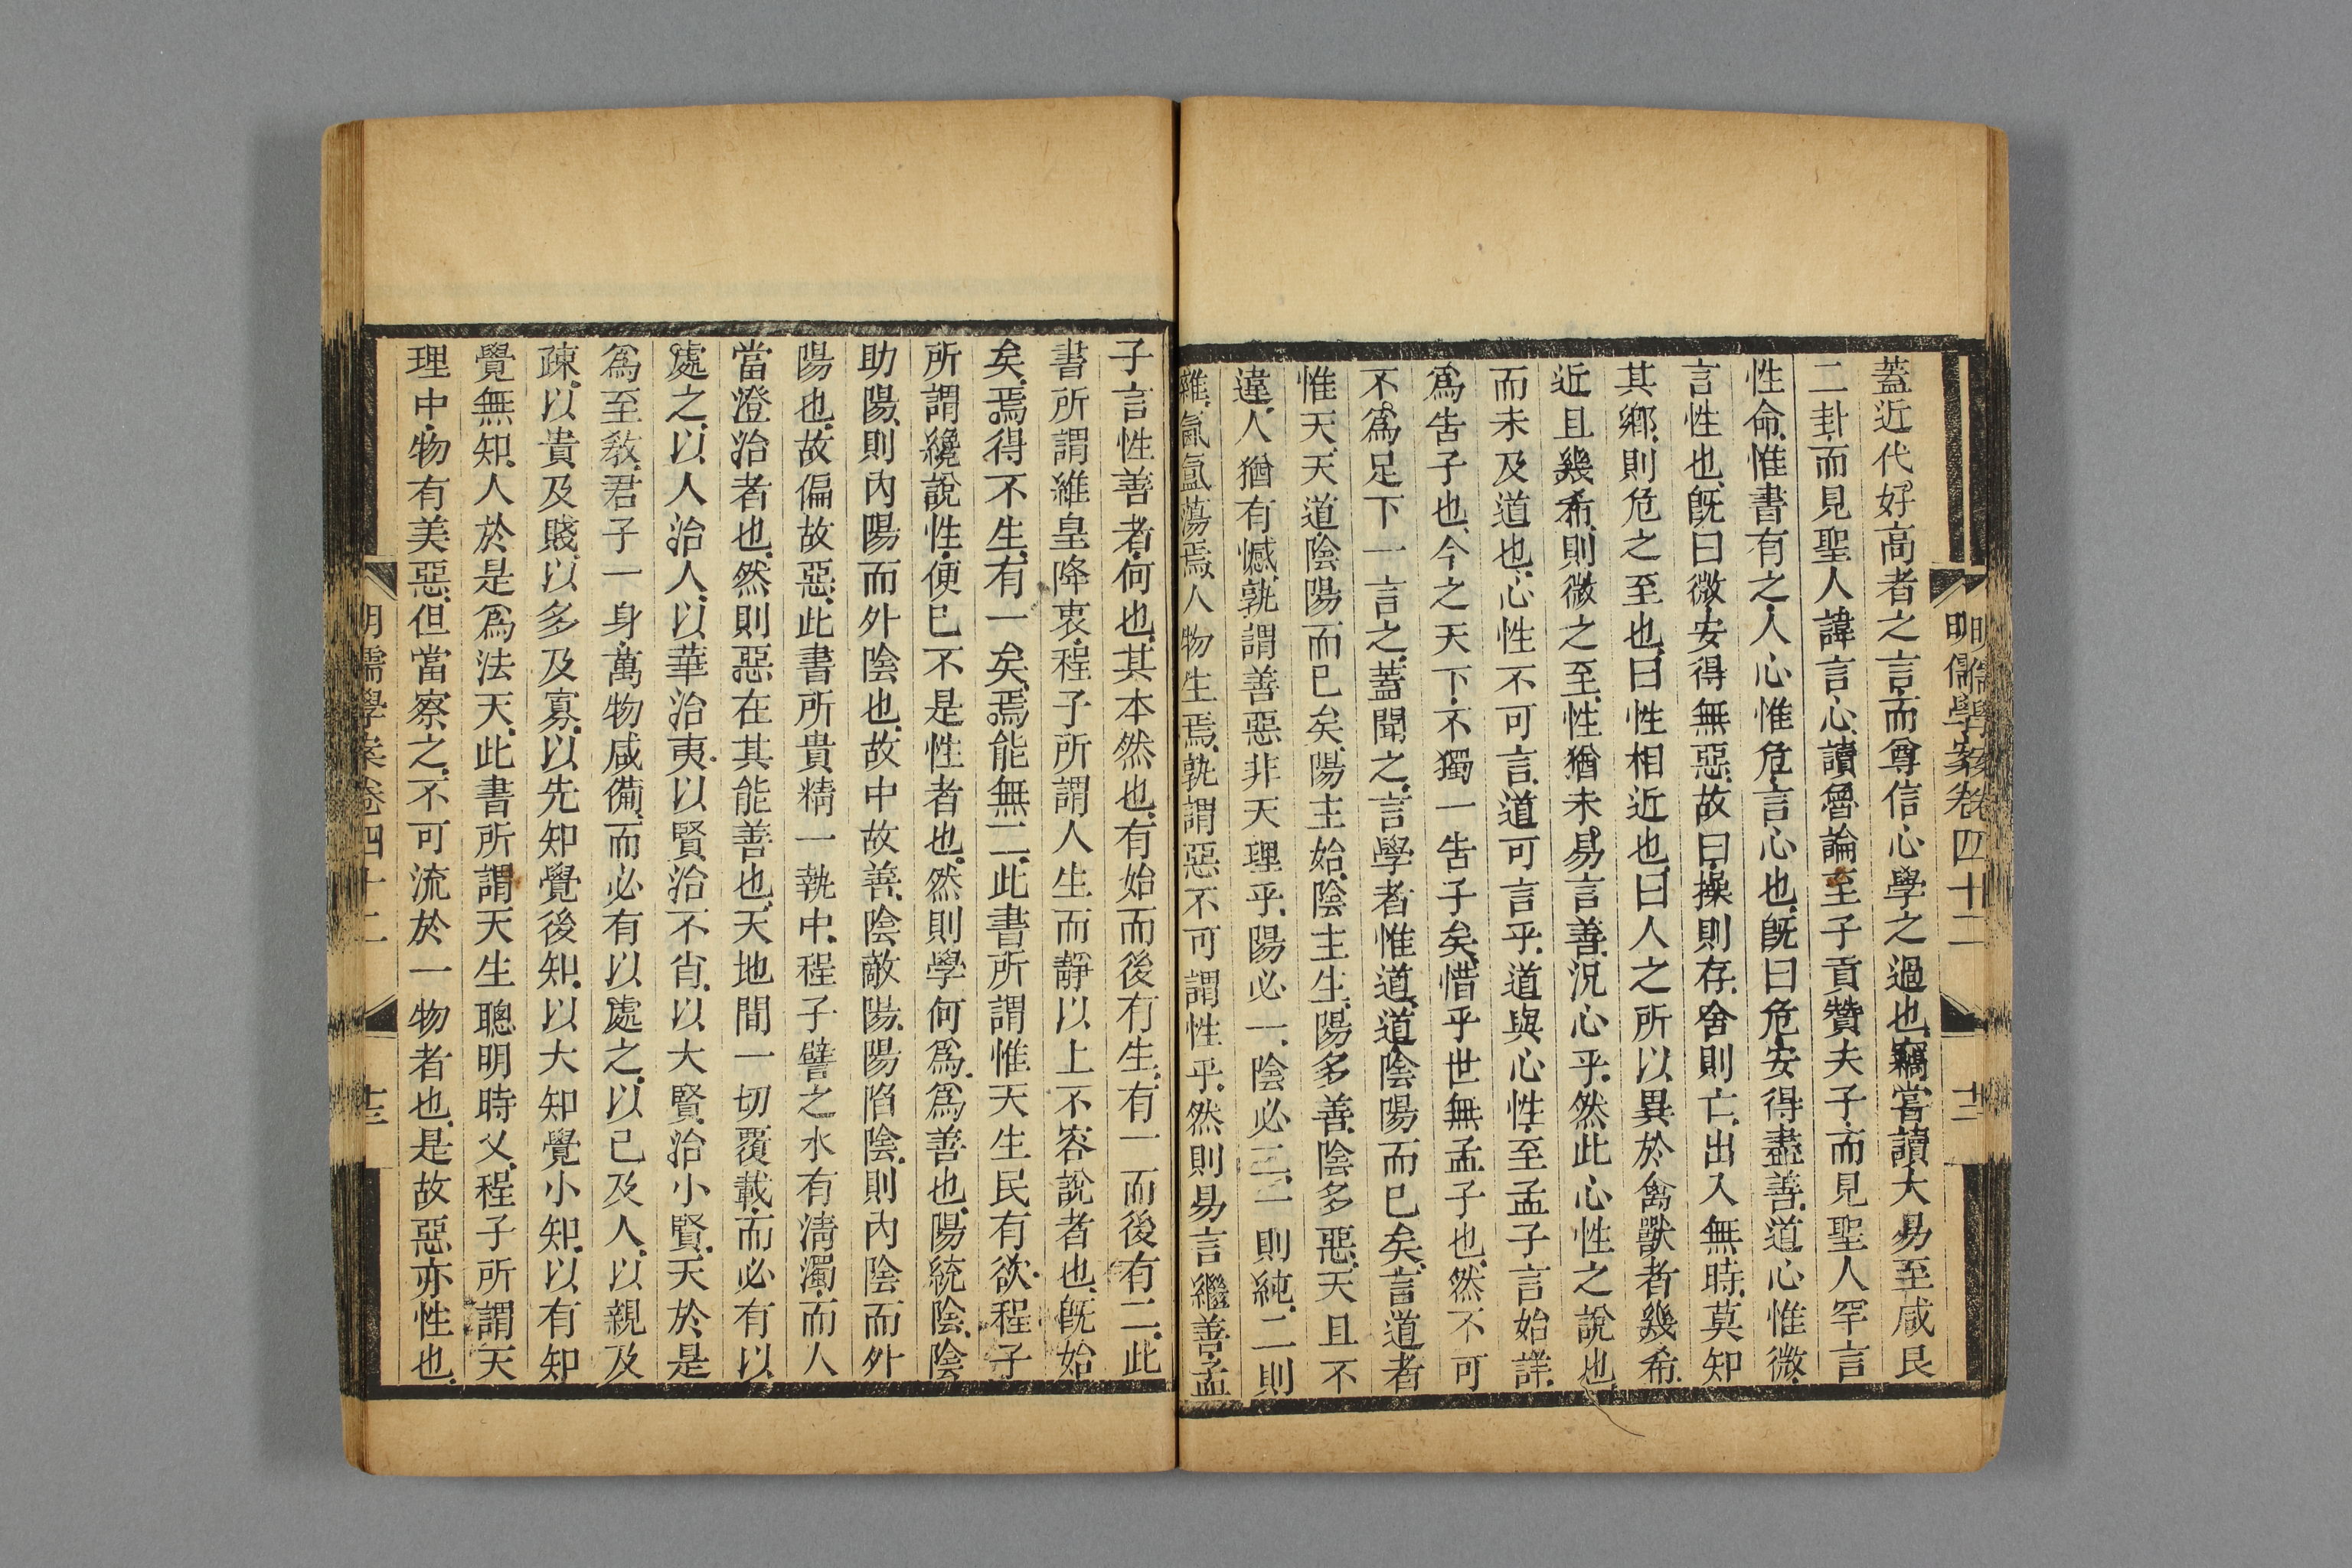 明儒學案卷四十二
十二
蓋近代好高者之言而尊信心學之過也竊嘗讀大易至咸艮
二卦而見聖人諱言心讀魯論至子貢贊夫子而見聖人罕言
性命惟書有之人心惟危言心也旣曰危安得盡善道心惟微
言性也旣曰微安得無惡故曰操則存舍則亡出入無時莫知
其鄉則危之至也曰性相近也曰人之所以異於禽獸者幾希
近且幾希則微之至性猶未易言善況心乎然此心性之說也
而未及道也心性不可言道可言乎道與心性至孟子言始詳
爲吿子也今之天下不獨一吿子矣惜乎世無孟子也然不可
不爲足下一言之蓋聞之言學者惟道道陰陽而巳矣言道者
惟天天道陰陽而巳矣陽主始陰主生陽多善陰多惡天且不
違人猶有憾孰謂善惡非天理乎陽必一陰必二一則純二則
雜氤氳蕩焉人物生焉孰謂惡不可謂性乎然則易言繼善孟
子言性善者何也其本然也有始而後有生有一而後有二此
書所謂維皇降衷程子所謂人生而靜以上不容說者也旣始
矣焉得不生有一矣焉能無二此書所謂惟天生民有欲程子
所謂纔說性便巳不是性者也然則學何爲爲善也陽統陰陰
助陽則內陽而外陰也故中故善陰敵陽陽陷陰則內陰而外
陽也故偏故惡此書所貴精一執中程子譬之水有淸濁而人
當澄治者也然則惡在其能善也天地間一切覆載而必有以
處之以人治人以華治夷以賢治不肖以大賢治小賢天於是
爲至敎君子一身萬物咸備而必有以處之以已及人以親及
疎以貴及賤以多及寡以先知覺後知以大知覺小知以有知
覺無知人於是爲法天此書所謂天生聰明時乂程子所謂天
理中物有美惡但當察之不可流於一物者也是故惡亦性也
明儒學案卷四十二
十三